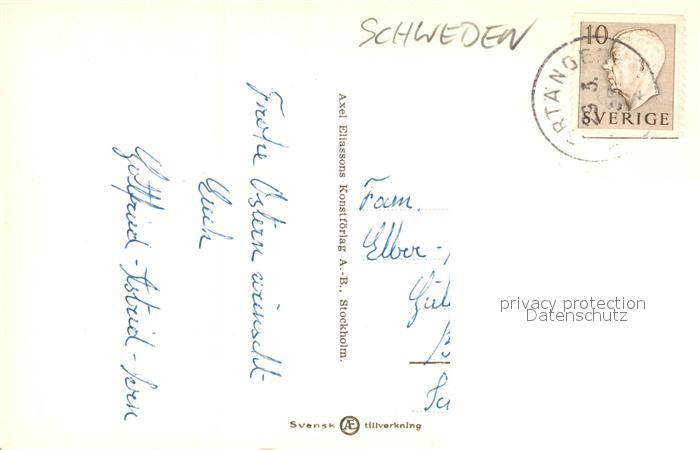 SCHWEDEN
10
SVERIGE
Frohe Ostern wünscht
Euch
Gottfried - Astrid - Sven
Axel Eliassons Konstförlag A.-B., Stockholm.
Fam.
Elber -
privacy protection
Datenschutz
Svensk Æ tillverkning